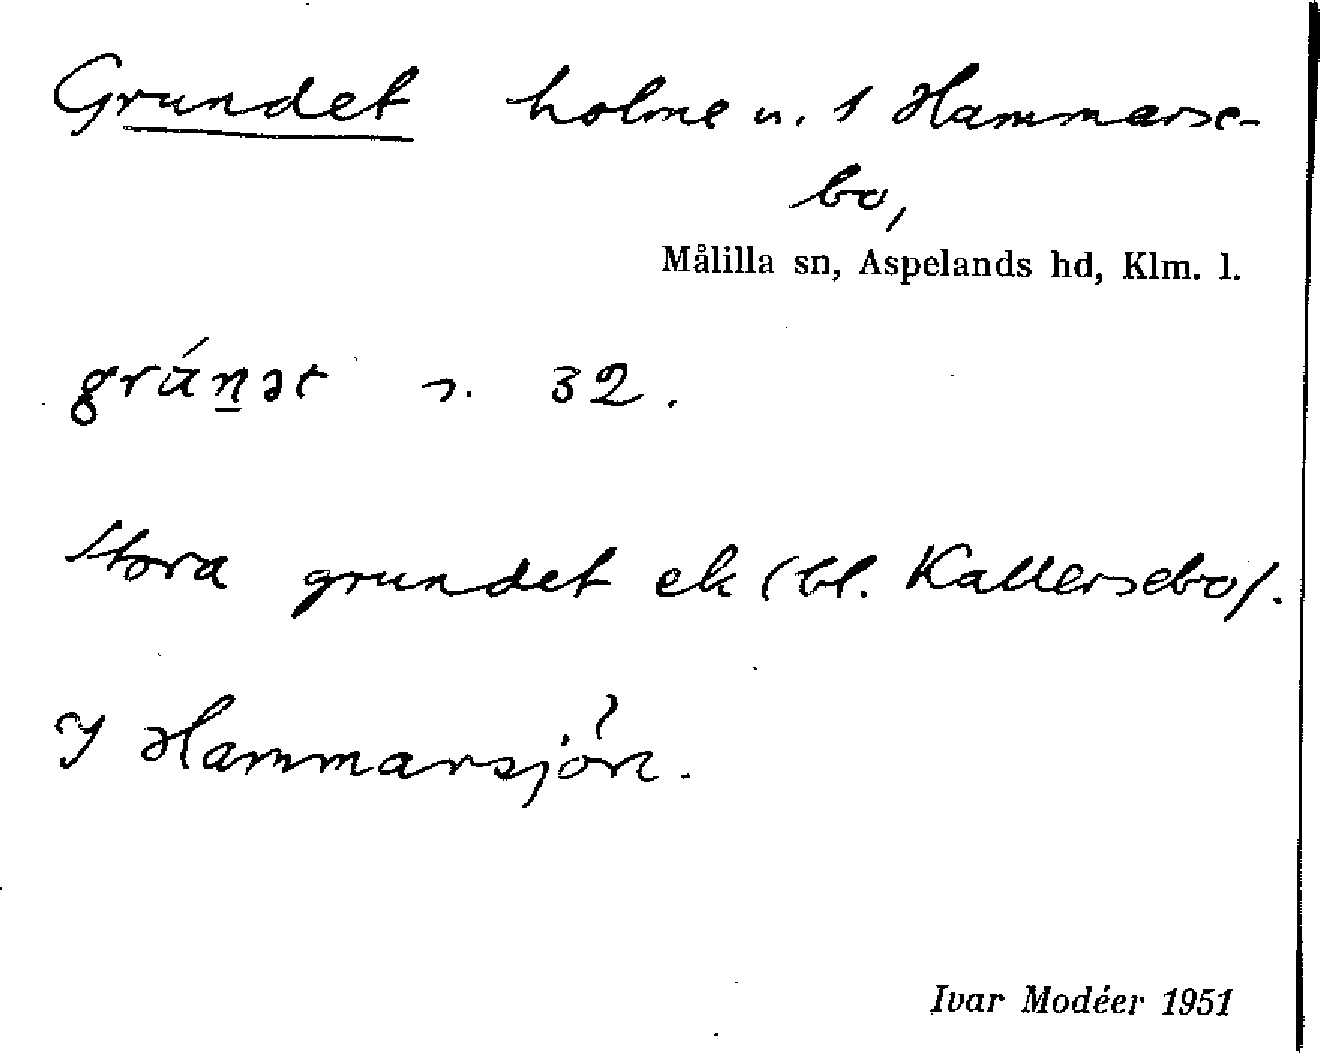 Grundet holme u. 1 Hammarse-
bo,
Målilla sn, Aspelands hd, Klm. l.
grún̲ət s. 32.
Stora grundet ek (bl. Kallersebo).
I Hammarsjön.
Ivar Modéer 1951